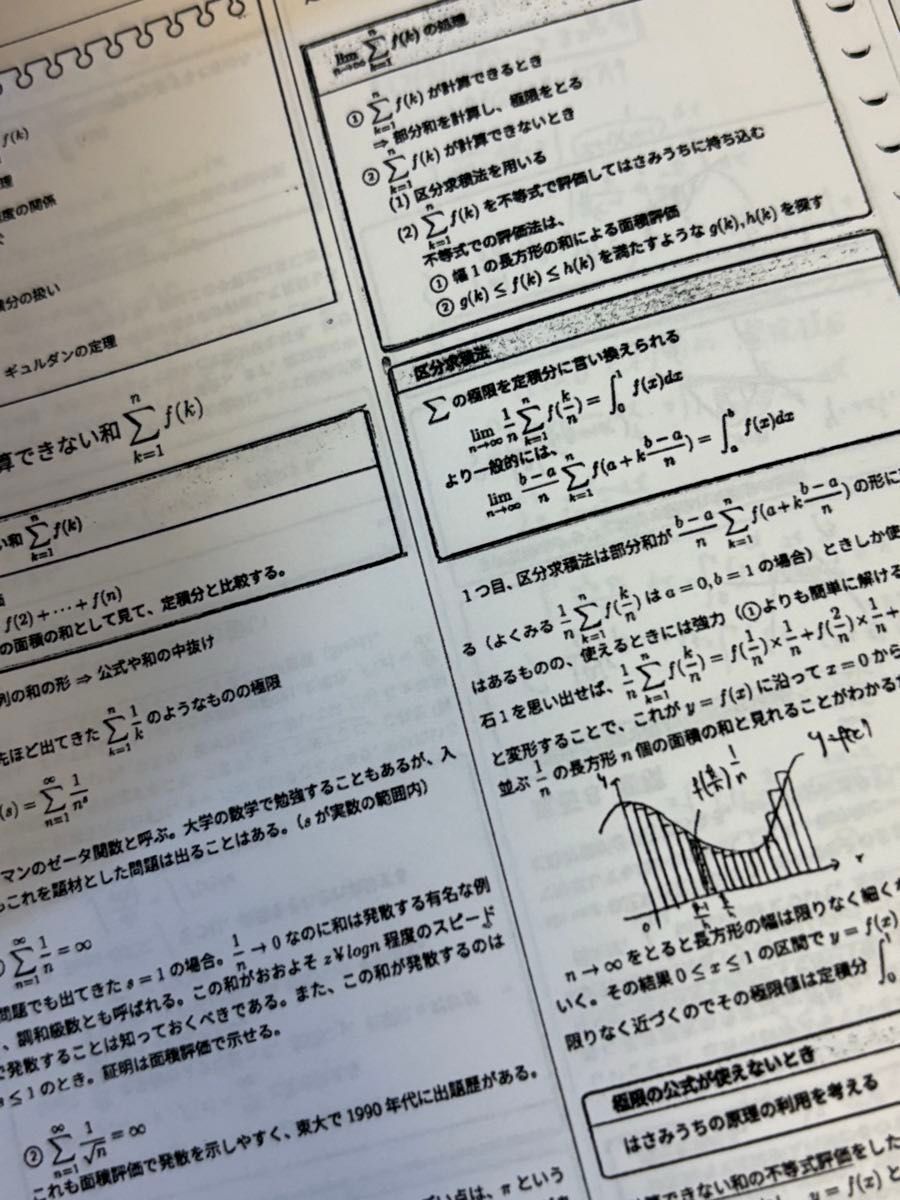 f(k)
理
度の関係
積分の扱い
ギュルダンの定理
算できない和 \sum_{k=1}^{n} f(k)
い和 \sum_{k=1}^{n} f(k)
f(2)+⋯+f(n)
の面積の和として見て、定積分と比較する。
列の和の形 ⇒ 公式や和の中抜け
先ほど出てきた \sum_{k=1}^{n} \frac{1}{k} のようなものの極限
(s) = \sum_{n=1}^{∞} \frac{1}{n^s}
マンのゼータ関数と呼ぶ。大学の数学で勉強することもあるが、入
これを題材とした問題は出ることはある。(s が実数の範囲内)
\sum_{n=1}^{∞} \frac{1}{n} = ∞
問題でも出てきた s = 1 の場合。\frac{1}{n} → 0 なのに和は発散する有名な例
、調和級数とも呼ばれる。この和がおおよそ z¥logn 程度のスピード
で発散することは知っておくべきである。また、この和が発散するのは
s ≤ 1 のとき。証明は面積評価で示せる。
② \sum_{n=1}^{∞} \frac{1}{\sqrt{n}} = ∞
これも面積評価で発散を示しやすく、東大で 1990 年代に出題歴がある。
点は、π という
\lim_{n→∞} \sum_{k=1}^{n} f(k) の処理
① \sum_{k=1}^{n} f(k) が計算できるとき
⇒ 部分和を計算し、極限をとる
② \sum_{k=1}^{n} f(k) が計算できないとき
(1) 区分求積法を用いる
(2) \sum_{k=1}^{n} f(k) を不等式で評価してはさみうちに持ち込む
不等式での評価法は、
① 幅 1 の長方形の和による面積評価
② g(k) ≤ f(k) ≤ h(k) を満たすような g(k), h(k) を探す
区分求積法
∑ の極限を定積分に言い換えられる
\lim_{n→∞} \frac{1}{n} \sum_{k=1}^{n} f(\frac{k}{n}) = \int_0^1 f(x)dx
より一般的には、
\lim_{n→∞} \frac{b-a}{n} \sum_{k=1}^{n} f(a+k\frac{b-a}{n}) = \int_a^b f(x)dx
1つ目、区分求積法は部分和が \frac{b-a}{n} \sum_{k=1}^{n} f(a+k\frac{b-a}{n}) の形に
る (よくみる \frac{1}{n} \sum_{k=1}^{n} f(\frac{k}{n}) は a = 0, b = 1 の場合) ときしか使
はあるものの、使えるときには強力 (①よりも簡単に解ける
石 1 を思い出せば、\frac{1}{n} \sum_{k=1}^{n} f(\frac{k}{n}) = f(\frac{1}{n}) × \frac{1}{n} + f(\frac{2}{n}) × \frac{1}{n} +
と変形することで、これが y = f(x) に沿って x = 0 から
並ぶ \frac{1}{n} の長方形 n 個の面積の和と見れることがわかるだ
y
f(\frac{k}{n})\frac{1}{n}
y=f(x)
x
0
\frac{k-1}{n} \frac{k}{n}
n → ∞ をとると長方形の幅は限りなく細くな
いく。その結果 0 ≤ x ≤ 1 の区間で y = f(x)
限りなく近づくのでその極限値は定積分 \int_0^1
極限の公式が使えないとき
はさみうちの原理の利用を考える
算できない和の不等式評価をした
= f(x) と